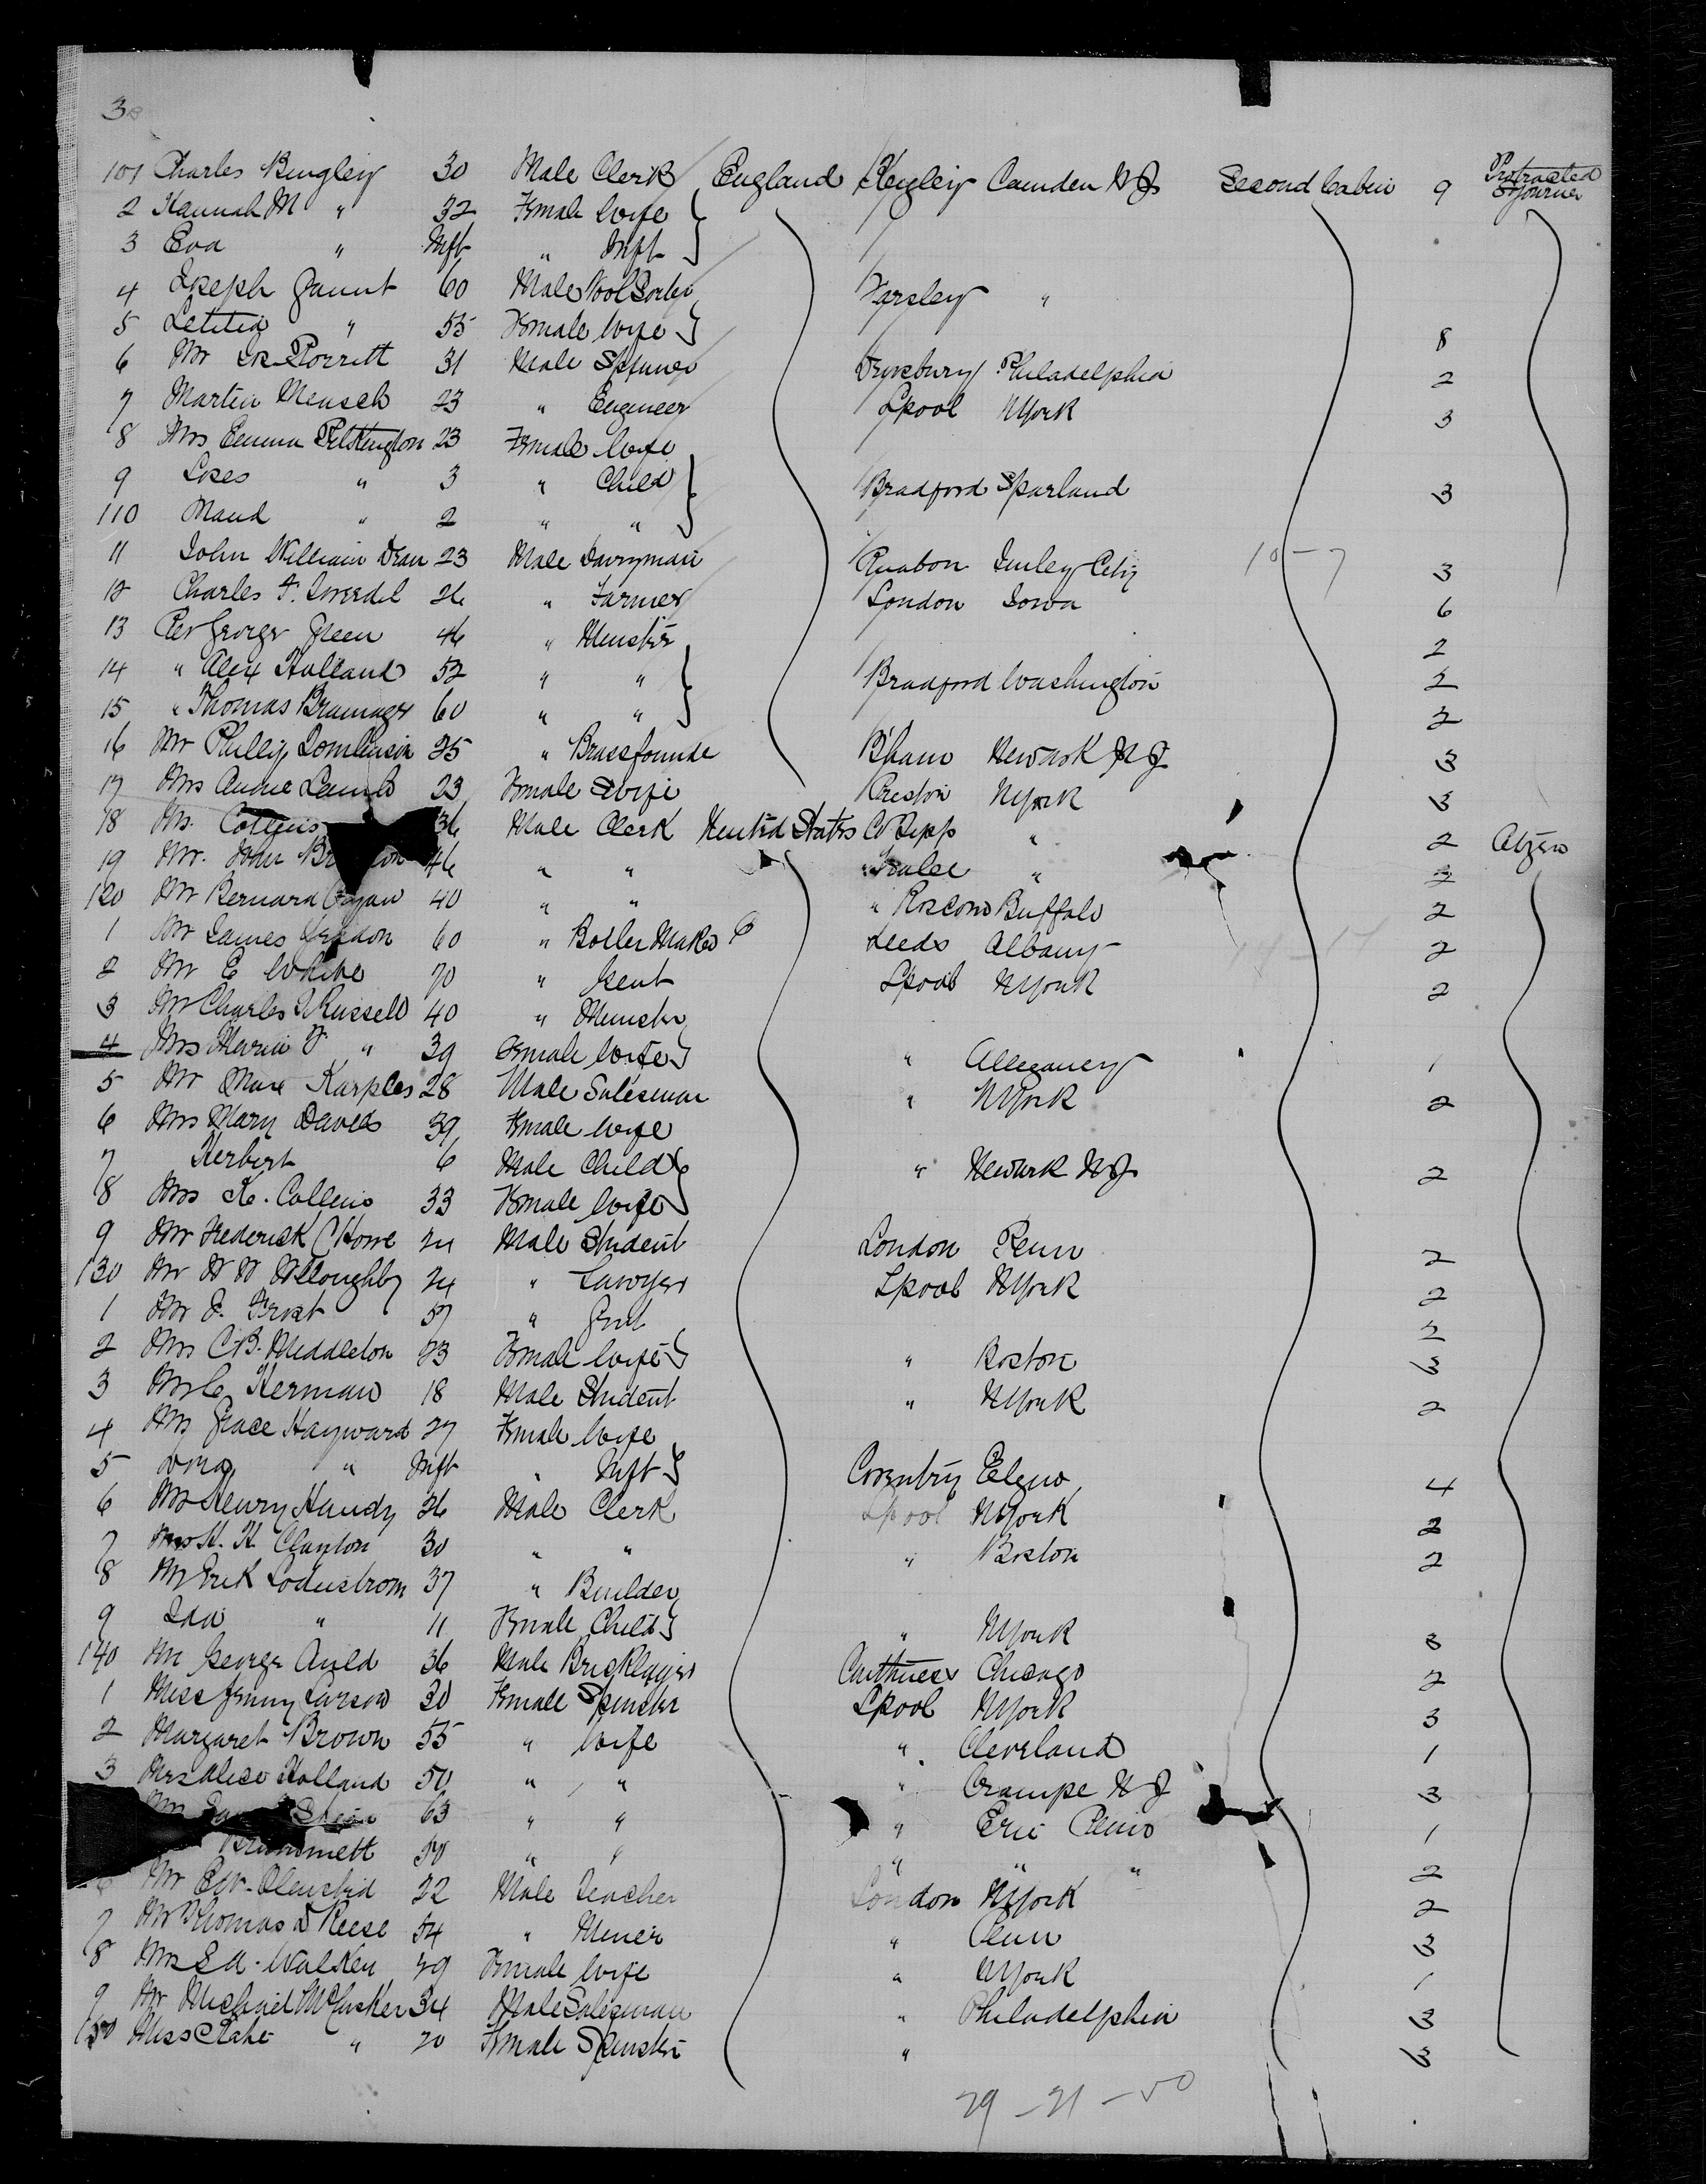 3
101 Charles Bingley 30 Male Clerk England Keigley Camden N J Second Cabin 9 Protracted Sojourner
2 Hannah M " 32 Female Wife
3 Eva " Inft " Inft
4 Joseph Gaunt 60 Male Wool Sorter Farsley "
5 Letitia " 55 Female Wife 8
6 Mr Porritt 31 Male Spinner Dewsbury Philadelphia 2
7 Martin Mensch 23 " Engineer Lpool NYork 3
8 Mrs Emma Pilkington 23 Female Wife
9 " 3 " Child Bradford Sparland 3
110 Maud " 2 " "
11 John William Dean 23 Male Dairyman Ruabon Imley City 10-7 3
12 Charles F. 26 " Farmer London Iowa 6
13 Rev George Green 46 " Minister 2
14 " Alex Holland 52 " " Bradford Washington 2
15 " Thomas Bramager 60 " " 2
16 Mr Philip Tomlinson 25 " Brassfounder B'ham Newark N J 3
17 Mrs Annie Lamb 23 Female Wife Preston NYork 3
18 Mr. Collins 36 Male Clerk United States Co Tipp " 2 Citizen
19 Mr. John 46 " " " 2
120 Mr Bernard 40 " " " Roscom Buffalo 2
1 Mr James 60 " Boiler Maker Leeds Albany 2
2 Mr E White 70 " Gent Lpool NYork 2
3 Mr Charles T Russell 40 " Minister
4 Mrs Maria F " 39 Female Wife " Allegancy 1
5 Mr Max Karples 28 Male Salesman " NYork 2
6 Mrs Mary Davies 39 Female Wife
7 Herbert 6 Male Child " Newark N J 2
8 Mrs K. Collins 33 Female Wife
9 Mr Frederick C Howe 24 Male Student London Penn 2
130 Mr W W Willoughby 24 " Lawyer Lpool NYork 2
1 Mr Frost 57 " Gent 2
2 Mrs C B. Middleton 23 Female Wife " Boston 3
3 Mr C Herman 18 Male Student " NYork 2
4 Mrs Grace Hayward 27 Female Wife
5 Dora " Inft " Inft Coventry Elgin 4
6 Mr Henry Handy 26 Male Clerk Lpool NYork 2
7 H. H. Clayton 30 " " " Boston 2
8 Mr Erik Lodustrom 37 " Builder
9 Ida " 11 Female Child " NYork 3
140 Mr George Auld 36 Male Bricklayer Caithness Chicago 2
1 Miss Jenny Larson 30 Female Spinster Lpool NYork 3
2 Margaret Brown 55 " Wife " Cleveland 1
3 Mrs Alice Holland 50 " " " Orange N J 3
Mrs 63 " " " Erie Penn 1
" " " " " 2
Mr 22 Male Teacher London NYork 2
7 Mr Thomas D Reese 54 " Miner " Penn 3
8 Mrs E A. Walker 29 Female Wife " NYork 1
9 Mr Michael McCusker 34 Male Salesman " Philadelphia 3
150 Miss Kate " 20 Female Spinster " 3
29 - 21 - 50